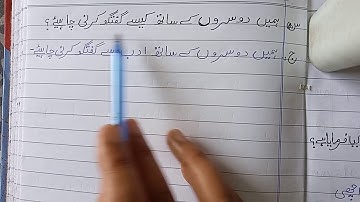 س: ہمیں دوسروں کے ساتھ کیسے گفتگو کرنی چاہیئے؟
ج: ہمیں دوسروں کے ساتھ ادب سے گفتگو کرنی چاہیئے۔
فرمایا ہے؟
اچھی